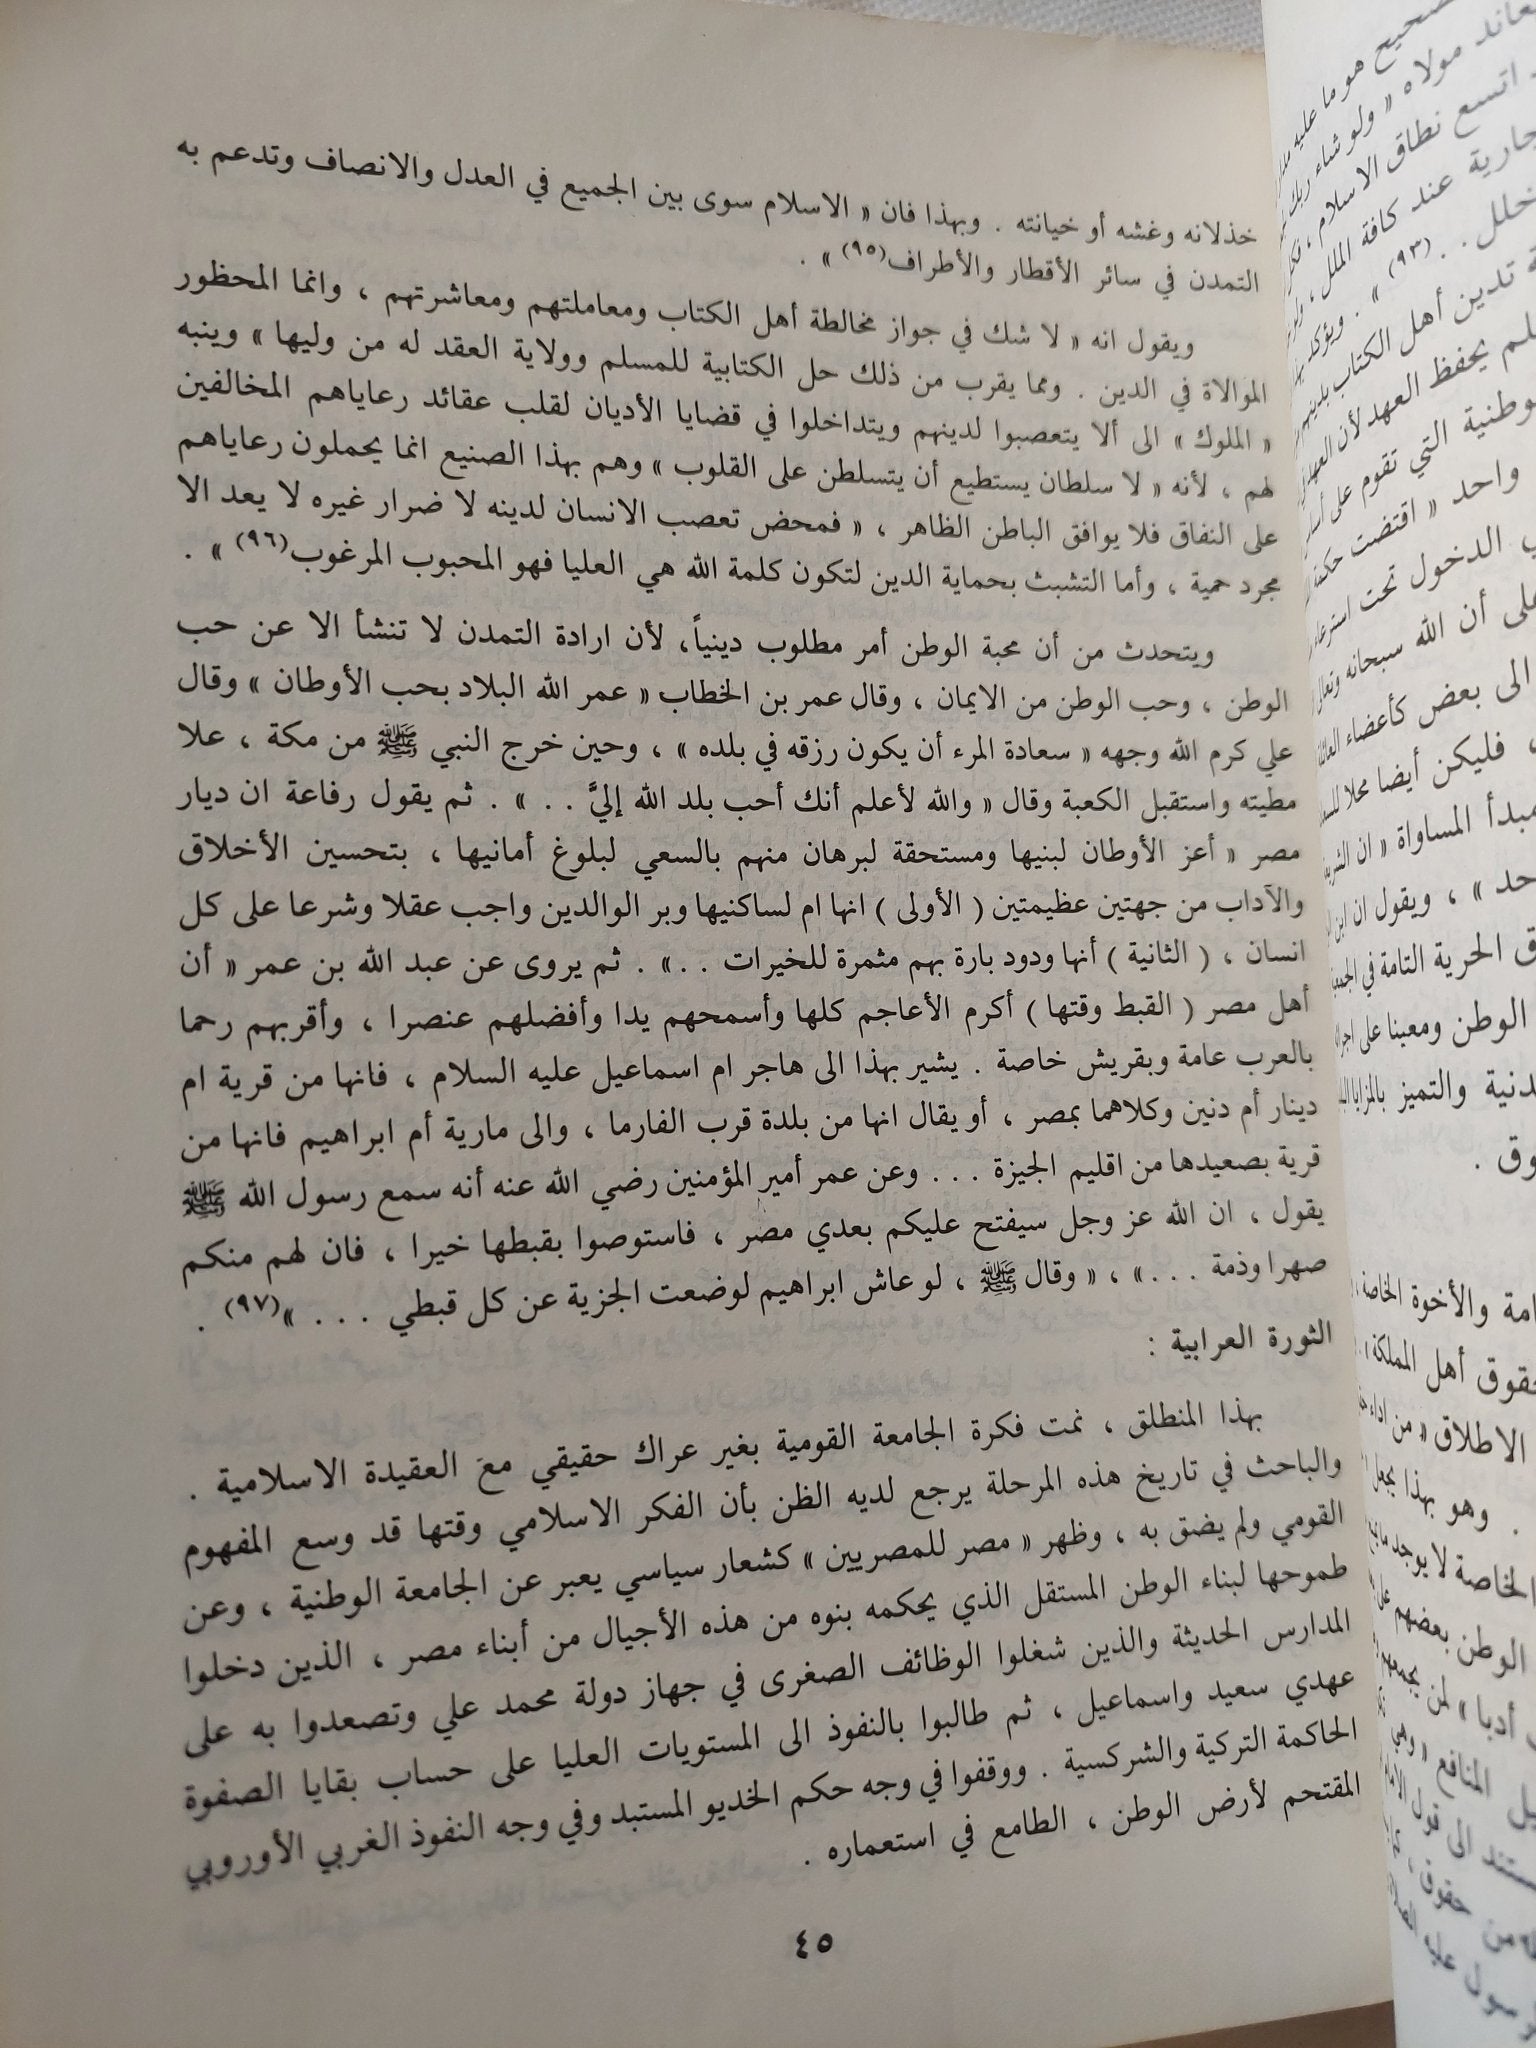 خذلانه وغشه أو خيانته . وبهذا فان « الاسلام سوى بين الجميع في العدل والانصاف وتدعم به
التمدن في سائر الأقطار والأطراف(٩٥) » .
ويقول انه « لا شك في جواز مخالطة أهل الكتاب ومعاملتهم ومعاشرتهم ، وانما المحظور
الموالاة في الدين . ومما يقرب من ذلك حل الكتابية للمسلم وولاية العقد له من وليها » وينبه
« الملوك » الى ألا يتعصبوا لدينهم ويتداخلوا في قضايا الأديان لقلب عقائد رعاياهم المخالفين
لهم ، لأنه « لا سلطان يستطيع أن يتسلطن على القلوب » وهم بهذا الصنيع انما يحملون رعاياهم
على النفاق فلا يوافق الباطن الظاهر ، « فمحض تعصب الانسان لدينه لا ضرار غيره لا يعد الا
مجرد حمية ، وأما التشبث بحماية الدين لتكون كلمة الله هي العليا فهو المحبوب المرغوب(٩٦) » .
ويتحدث من أن محبة الوطن أمر مطلوب دينياً، لأن ارادة التمدن لا تنشأ الا عن حب
الوطن ، وحب الوطن من الايمان ، وقال عمر بن الخطاب « عمر الله البلاد بحب الأوطان » وقال
علي كرم الله وجهه « سعادة المرء أن يكون رزقه في بلده » ، وحين خرج النبي ﷺ من مكة ، علا
مطيته واستقبل الكعبة وقال « والله لأعلم أنك أحب بلد الله إليَّ . . » . ثم يقول رفاعة ان ديار
مصر « أعز الأوطان لبنيها ومستحقة لبرهان منهم بالسعي لبلوغ أمانيها ، بتحسين الأخلاق
والآداب من جهتين عظيمتين ( الأولى ) انها ام لساكنيها وبر الوالدين واجب عقلا وشرعا على كل
انسان ، ( الثانية ) أنها ودود بارة بهم مثمرة للخيرات . . » . ثم يروى عن عبد الله بن عمر « أن
أهل مصر ( القبط وقتها ) أكرم الأعاجم كلها وأسمحهم يدا وأفضلهم عنصرا ، وأقربهم رحما
بالعرب عامة وبقريش خاصة . يشير بهذا الى هاجر ام اسماعيل عليه السلام ، فانها من قرية ام
دينار أم دنين وكلاهما بمصر ، أو يقال انها من بلدة قرب الفارما ، والى مارية أم ابراهيم فانها من
قرية بصعيدها من اقليم الجيزة . . . وعن عمر أمير المؤمنين رضي الله عنه أنه سمع رسول الله ﷺ
يقول ، ان الله عز وجل سيفتح عليكم بعدي مصر ، فاستوصوا بقبطها خيرا ، فان لهم منكم
صهرا وذمة . . . » ، « وقال ﷺ ، لو عاش ابراهيم لوضعت الجزية عن كل قبطي . . . »(٩٧) .
الثورة العرابية :
بهذا المنطلق ، نمت فكرة الجامعة القومية بغير عراك حقيقي مع العقيدة الاسلامية .
والباحث في تاريخ هذه المرحلة يرجع لديه الظن بأن الفكر الاسلامي وقتها قد وسع المفهوم
القومي ولم يضق به ، وظهر « مصر للمصريين » كشعار سياسي يعبر عن الجامعة الوطنية ، وعن
طموحها لبناء الوطن المستقل الذي يحكمه بنوه من هذه الأجيال من أبناء مصر ، الذين دخلوا
المدارس الحديثة والذين شغلوا الوظائف الصغرى في جهاز دولة محمد علي وتصعدوا به على
عهدي سعيد واسماعيل ، ثم طالبوا بالنفوذ الى المستويات العليا على حساب بقايا الصفوة
الحاكمة التركية والشركسية . ووقفوا في وجه حكم الخديو المستبد وفي وجه النفوذ الغربي الأوروبي
المقتحم لأرض الوطن ، الطامع في استعماره .
٤٥